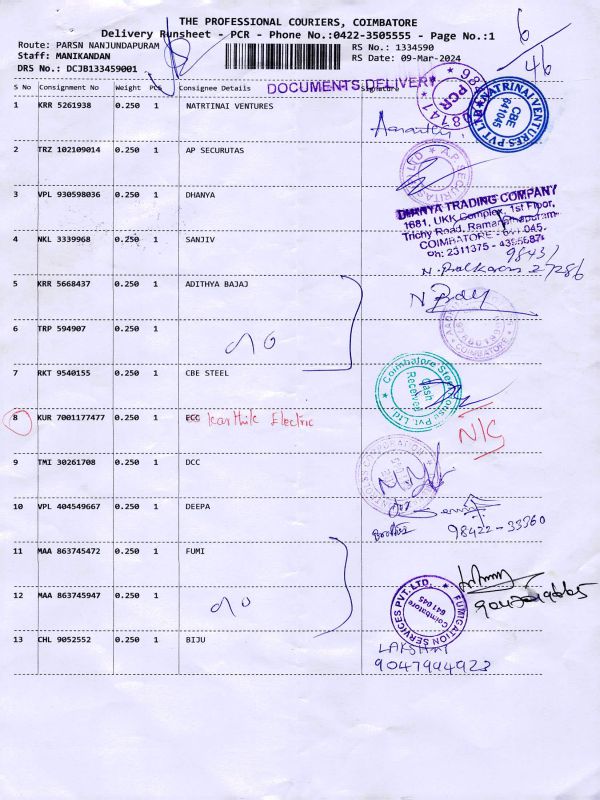 THE PROFESSIONAL COURIERS, COIMBATORE
Delivery Runsheet - PCR - Phone No.:0422-3505555 - Page No.:1
6
46
Route: PARSN NANJUNDAPURAM
RS No.: 1334590
Staff: MANIKANDAN
RS Date: 09-Mar-2024
DRS No.: DCJB133459001
DOCUMENTS DELIVERY
S No Consignment No Weight Pcs Consignee Details Signature
PCR
NATRINAI VENTURES PVT LTD
CBE
641045
1 KRR 5261938 0.250 1 NATRINAI VENTURES
2 TRZ 102109014 0.250 1 AP SECURUTAS
A.P. SECURITAS
3 VPL 930598036 0.250 1 DHANYA
DHANYA TRADING COMPANY
1681, UKK Complex, 1st Floor,
Trichy Road, Ramanathapuram,
COIMBATORE - 641 045.
4 NKL 3339968 0.250 1 SANJIV
5 KRR 5668437 0.250 1 ADITHYA BAJAJ
6 TRP 594907 0.250 1
COIMBATORE
7 RKT 9540155 0.250 1 CBE STEEL
Coimbatore Steel House Pvt. Ltd.
Cash
Received
8 KUR 7001177477 0.250 1 ECG Karthik Electric
9 TMI 30261708 0.250 1 DCC
CORPORATION
10 VPL 404549667 0.250 1 DEEPA
98422-33360
11 MAA 863745472 0.250 1 FUMI
12 MAA 863745947 0.250 1
FUMIGATION SERVICES PVT. LTD.
Coimbatore
641 045
13 CHL 9052552 0.250 1 BIJU
LAKSHMI
9047944923